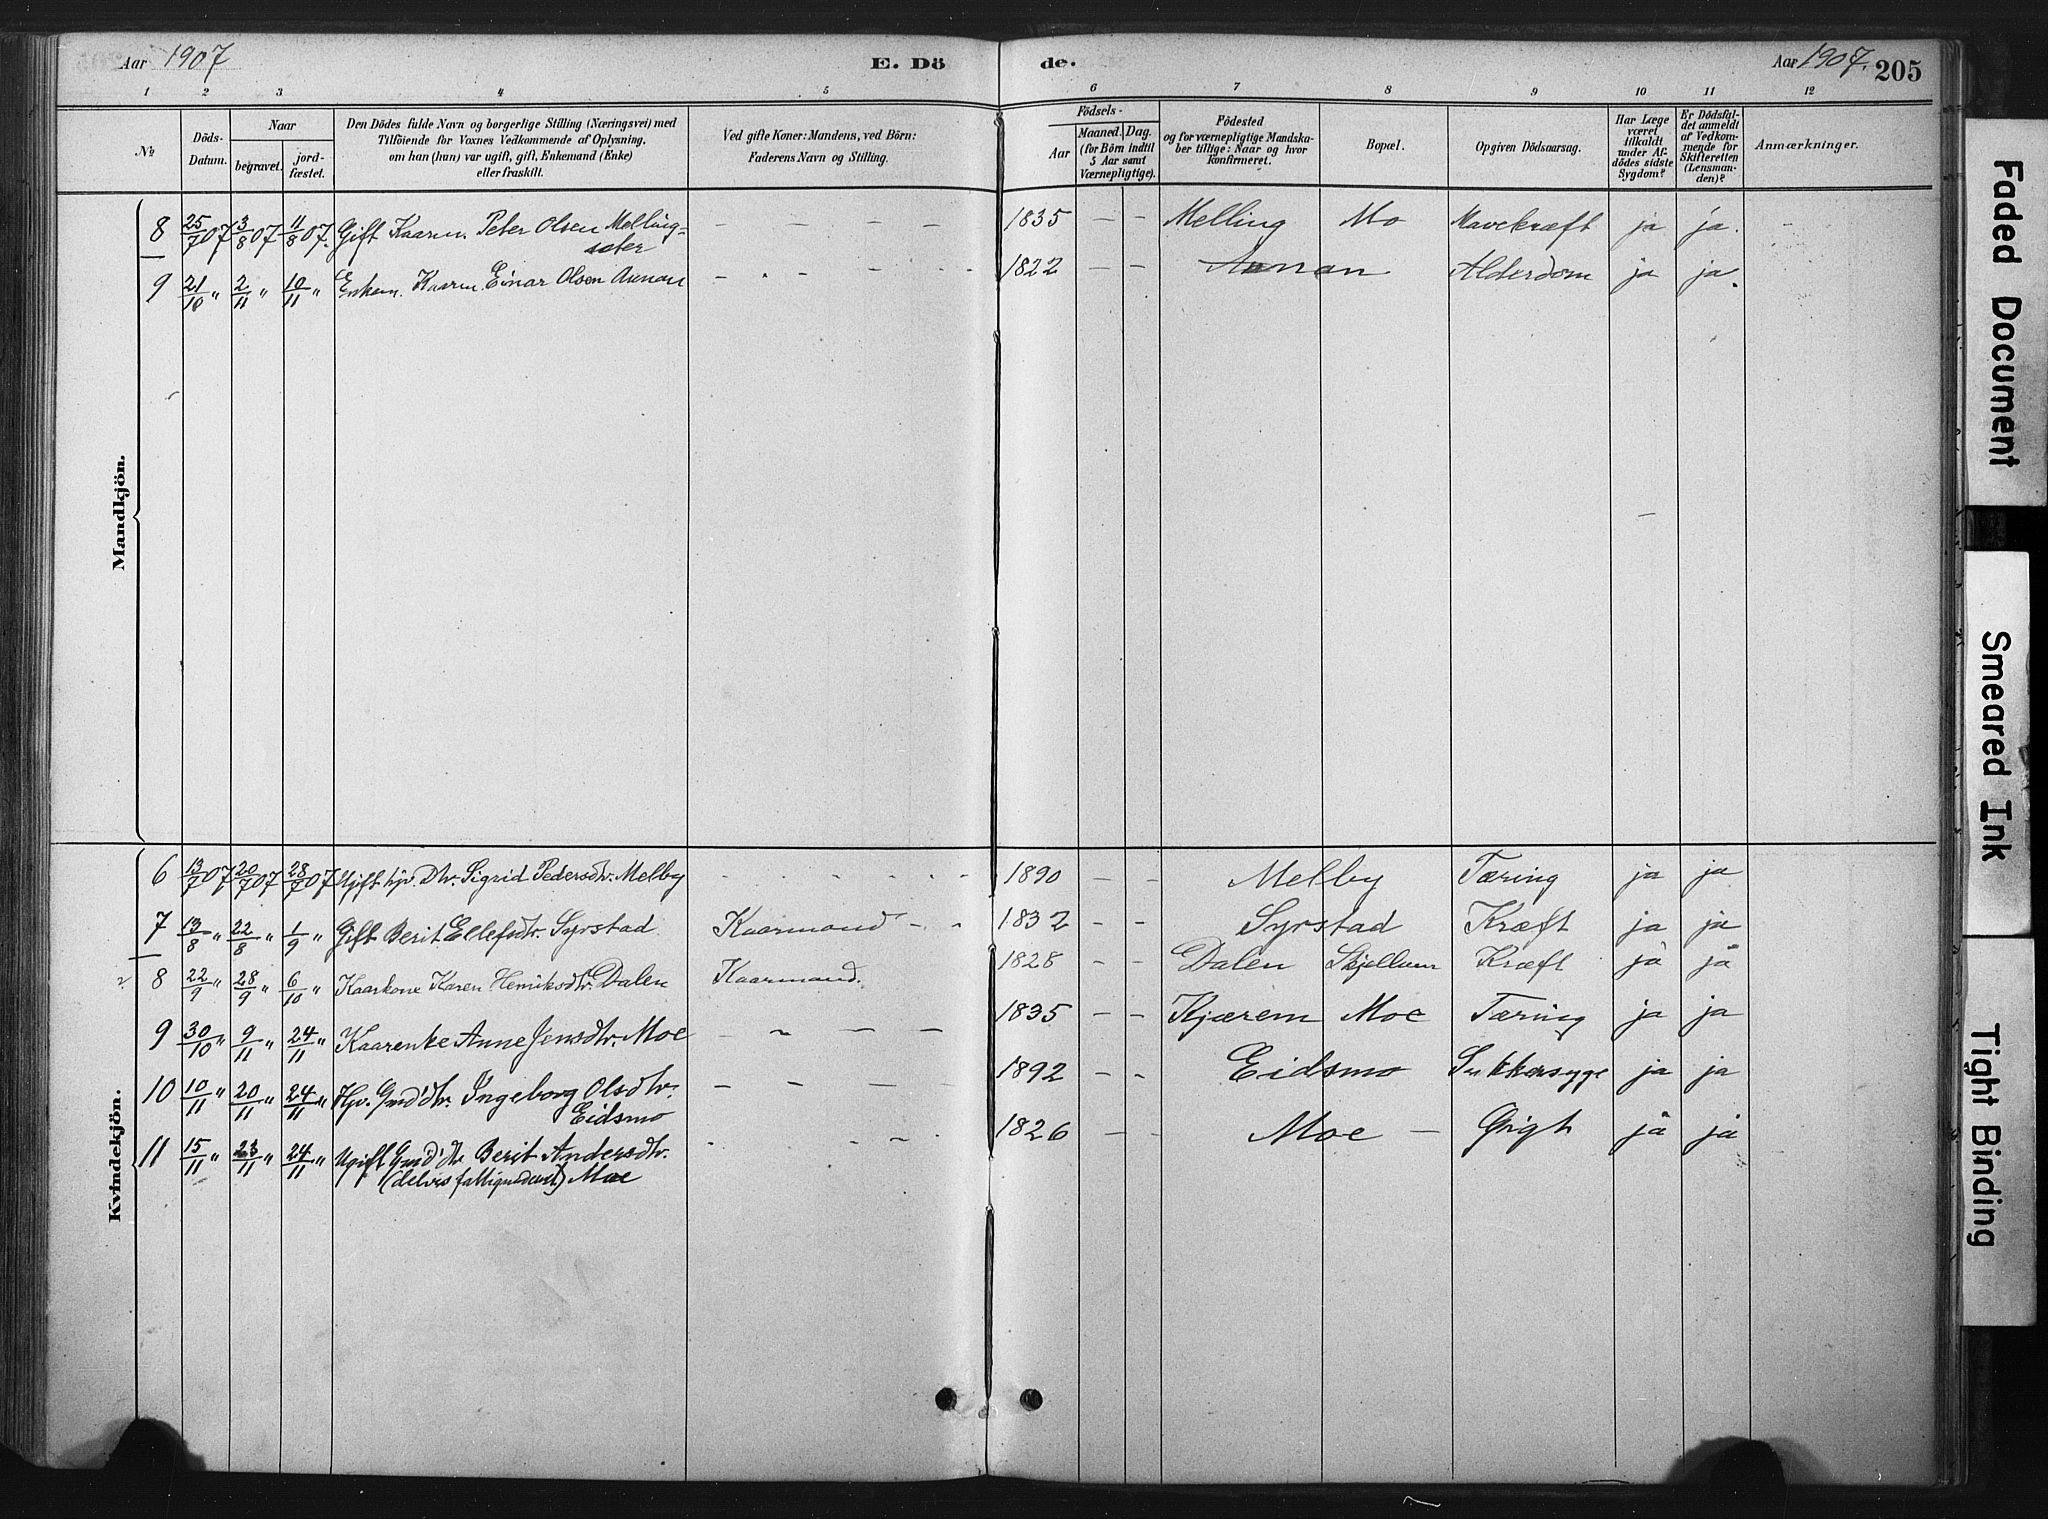 Aar 1907 E. Dö de. Aar 1907. 205
1 2 3 4 5 6 7 8 9 10 11 12
№
Döds-
Datum.
Naar
begravet.
jord-
fæstet.
Den Dödes fulde Navn og borgerlige Stilling (Næringsvei) med
Tilföiende for Voxnes Vedkommende af Oplysning,
om han (hun) var ugift, gift, Enkemand (Enke)
eller fraskilt.
Ved gifte Koner: Mandens, ved Börn:
Faderens Navn og Stilling.
Födsels-
Aar
Maaned. Dag.
(for Börn indtil
5 Aar samt
Værnepligtige).
Födested
og for værnepligtige Mandska-
ber tillige: Naar og hvor
konfirmeret.
Bopæl.
Opgiven Dödsaarsag.
Har Læge
været
tilkaldt
under Af-
dödes sidste
Sygdom?
Er Dödsfal-
det anmeldt
af Vedkom-
mende for
Skifteretten
(Lensman-
den)?
Anmærkninger.
Mandkjön.
8 25/7 07 3/8 07 11/8 07. Gift Kaarm. Peter Olsen Melling- – – – – 1835 – – Melling Mo Mavekræft ja ja.
sæter
9 21/10 " 2/11 " 10/11 " Enkem. Kaarm. Einar Olsen Aunan – – – – 1822 – – Aunan Alderdom ja ja.
Kvindekjön.
6 13/7 07 20/7 07 28/7 07 Ugift hp. Dtr. Sigrid Pedersdtr. Melby – – – – 1890 – – Melby Tæring ja ja
7 13/8 " 22/8 " 1/9 " Gift Berit Ellefsdtr. Syrstad Kaarmand – – 1832 – – Syrstad Kræft ja ja
8 22/9 " 28/9 " 6/10 " Kaarkone Karen Henriksdtr. Dalen Kaarmand. 1828 – – Dalen Skjellum Kræft ja ja
9 30/10 " 9/11 " 24/11 " Kaarenke Anne Jensdtr. Moe – – – – 1835 – – Kjærem Moe Tæring ja ja
10 10/11 " 20/11 " 24/11 " Hp. Gmd'dtr. Ingeborg Olsdtr. – – – – 1892 – – Eidsmo Sukkersyge ja ja
Eidsmo
11 15/11 " 23/11 " 24/11 " Ugift Gmd'dtr Berit Andersdtr. – – – 1826 – – Moe – Gigt ja ja
(delvis fattigunderst.) Moe
Faded Document
Smeared Ink
Tight Binding